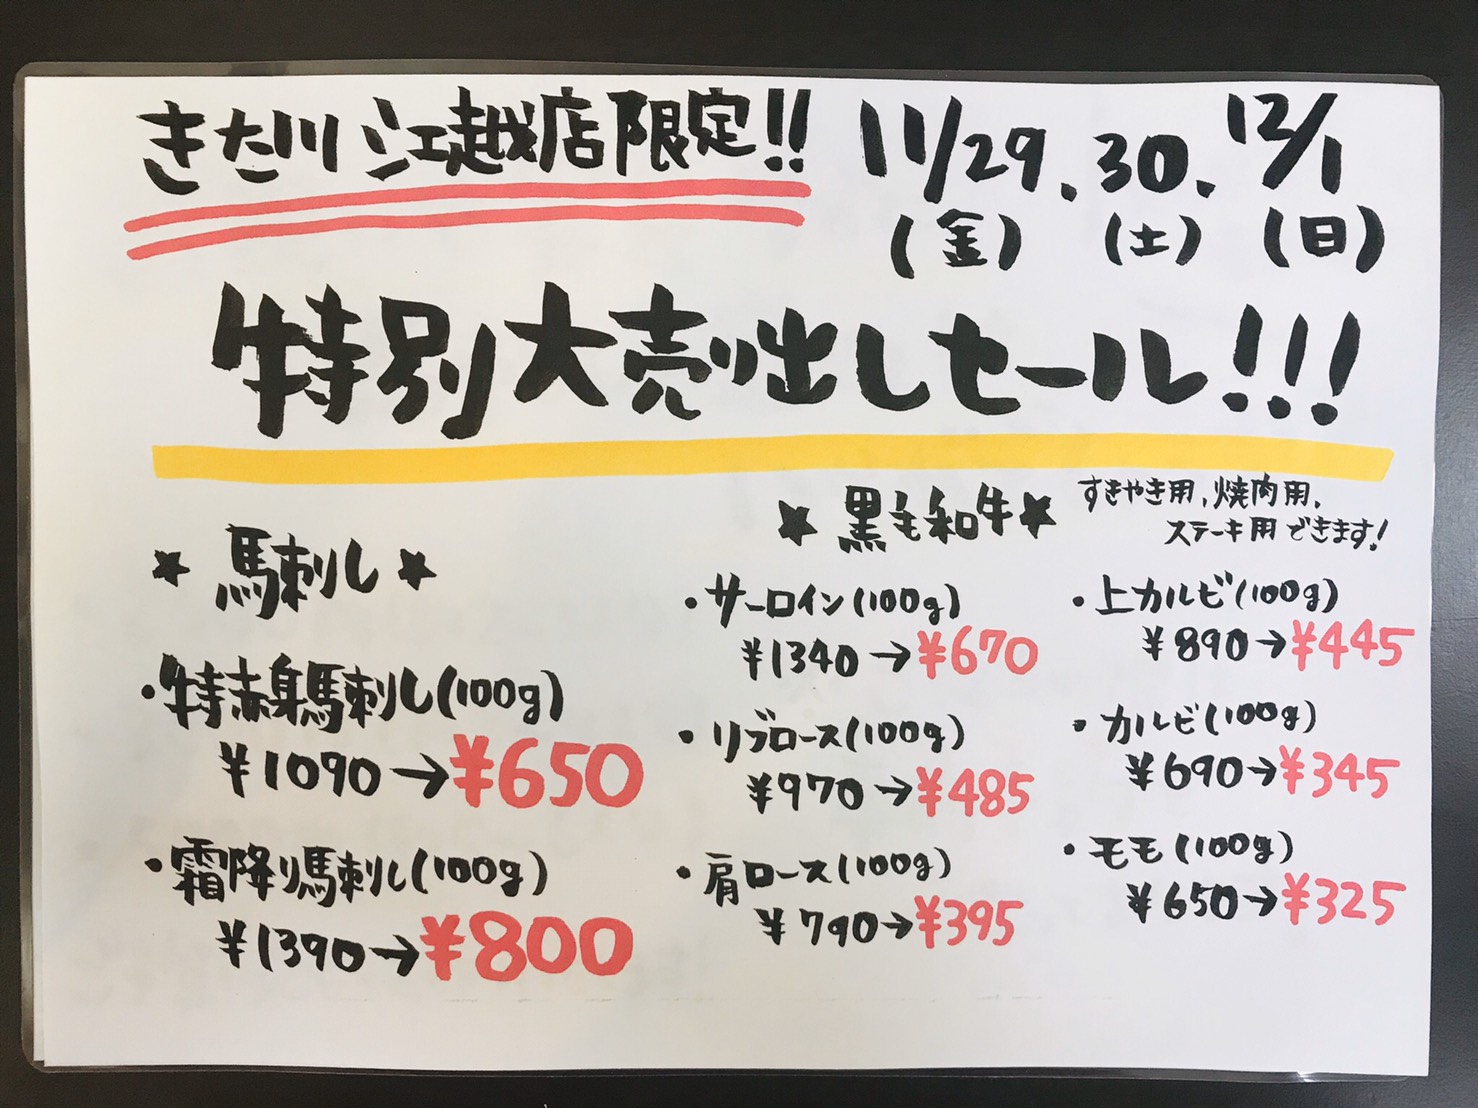 きた川 江越店限定!!
11/29.30.12/1
(金) (土) (日)
特別大売り出しセール!!!
★ 馬刺し ★
・特赤身馬刺し(100g)
¥1090→¥650
・霜降り馬刺し(100g)
¥1390→¥800
★ 黒毛和牛★
すきやき用、焼肉用、
ステーキ用できます!
・サーロイン(100g)
¥1340→¥670
・リブロース(100g)
¥970→¥485
・肩ロース(100g)
¥790→¥395
・上カルビ(100g)
¥890→¥445
・カルビ(100g)
¥690→¥345
・モモ(100g)
¥650→¥325